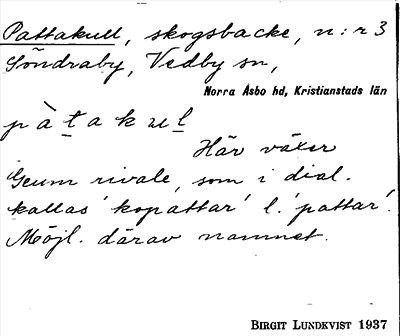 Pattakull, skogsbacke, n:r 3
Söndraby, Vedby sn,
Norra Åsbo hd, Kristianstads län
pàtakul
Här växer
Geum rivale, som i dial.
kallas 'kopattar' l. 'pattar'.
Möjl. därav namnet.
BIRGIT LUNDKVIST 1937